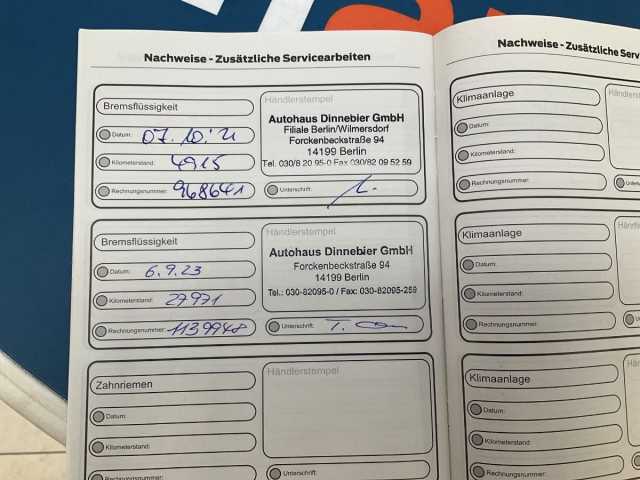 Nachweise - Zusätzliche Servicearbeiten
Bremsflüssigkeit
Datum: 07.10.21
Kilometerstand: 4915
Rechnungsnummer: 968641
Händlerstempel
Autohaus Dinnebier GmbH
Filiale Berlin/Wilmersdorf
Forckenbeckstraße 94
14199 Berlin
Tel. 030/8 20 95-0 Fax 030/82 09 52 59
Unterschrift:
Bremsflüssigkeit
Datum: 6.9.23
Kilometerstand: 27971
Rechnungsnummer: 1139948
Händlerstempel
Autohaus Dinnebier GmbH
Forckenbeckstraße 94
14199 Berlin
Tel.: 030-82095-0 / Fax: 030-82095-259
Unterschrift: T.
Zahnriemen
Datum:
Kilometerstand:
Rechnungsnummer:
Händlerstempel
Unterschrift:
Nachweise - Zusätzliche Service
Klimaanlage
Datum:
Kilometerstand:
Rechnungsnummer:
Klimaanlage
Datum:
Kilometerstand:
Rechnungsnummer:
Klimaanlage
Datum:
Kilometerstand:
Rechnungsnummer: